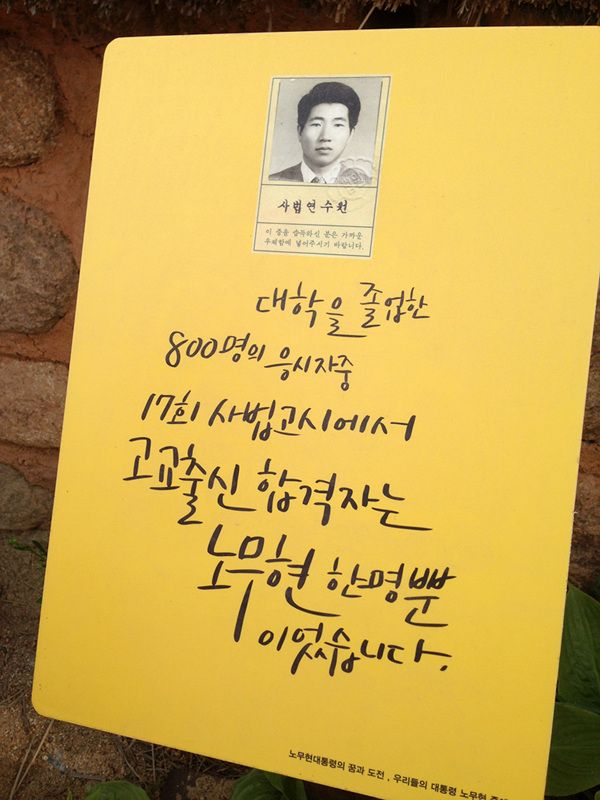 사법연수원
이 증을 습득하신 분은 가까운
우체함에 넣어주시기 바랍니다.
대학을 졸업한
800명의 응시자중
17회 사법고시에서
고교출신 합격자는
노무현 한명뿐
이었습니다.
노무현대통령의 꿈과 도전, 우리들의 대통령 노무현